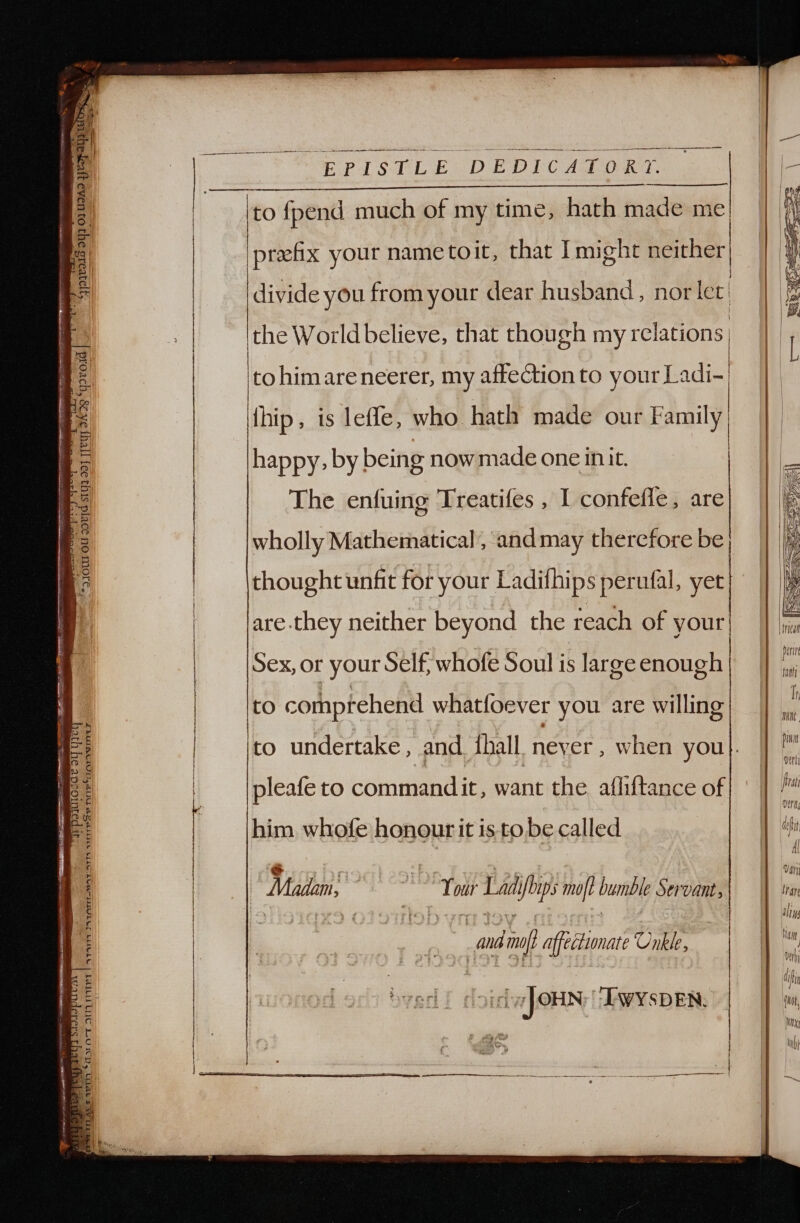 EPISTLE DEDICATORY.
to ſpend much of my time, hath made me
præfix your name to it, that I might neither
divide you from your dear husband, nor let
the World believe, that though my relations
to him are neerer, my affection to your Ladi-
ſhip, is leſſe, who hath made our Family
happy, by being now made one in it.
The enſuing Treatiſes, I confeſſe, are
wholly Mathematical, and may therefore be
thought unfit for your Ladiſhips peruſal, yet
are they neither beyond the reach of your
Sex, or your Self, whoſe Soul is large enough
to comprehend whatſoever you are willing
to undertake, and ſhall never, when you
pleaſe to command it, want the aſſiſtance of
him whoſe honour it is to be called
Madam, Your Ladiſhips moſt humble Servant,
and moſt affectionate Unkle,
JOHN TWYSDEN.
eaſt even to the greateſt,
proach, & ye ſhall ſee this place no more.
hath he appointed it.